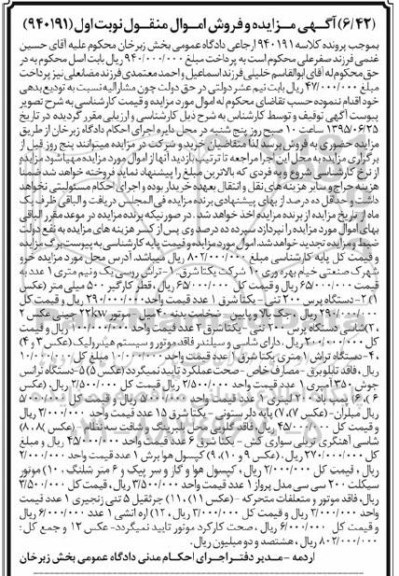 (۶/۴۲) آگهی مزایده و فروش اموال منقول نوبت اول (۹۴۰۱۹۱)
بموجب پرونده کلاسه ۹۴۰۱۹۱ ارجاعی دادگاه عمومی بخش زبرخان محکوم علیه آقای حسین
غنمی فرزند صفرعلی محکوم است به پرداخت مبلغ ۹۴۰/۰۰۰/۰۰۰ ریال بابت اصل محکوم به در
حق محکوم له آقای ابوالقاسم خلیلی فرزند اسماعیل و احمد معتمدی فرزند مضاعلی نیز پرداخت
مبلغ ۴۷/۰۰۰/۰۰۰ ریال بابت نیم عشر دولتی در حق دولت چون مشارالیه نسبت به تودیع بدهی
خود اقدام ننموده حسب تقاضای محکوم له اموال مورد مزایده و قیمت کارشناسی به شرح تصویر
پیوست آگهی توقیف و توسط کارشناس به شرح ذیل کارشناسی و ارزیابی مقرر گردیده در تاریخ
۱۳۹۵/۰۶/۲۵ ساعت ۱۰ صبح روز پنج شنبه در محل دایره اجرای احکام دادگاه زبرخان از طریق
مزایده حضوری به فروش برسد لذا متقاضیان خرید و شرکت در مزایده میتوانند پنج روز قبل از
برگزاری مزایده به محل این اجرا مراجعه تا ترتیب بازدید آنها از اموال مورد مزایده مهیا شود مزایده
از نرخ کارشناسی شروع و به فردی که بالاترین مبلغ را پیشنهاد نماید فروخته خواهد شد ضمنا
هزینه حراج و سایر هزینه های نقل و انتقال بعهده خریدار بوده و اجرای احکام مسئولیتی نخواهد
داشت. حداقل ده درصد از بهای پیشنهادی برنده مزایده فی المجلس دریافت و الباقی ظرف یک
ماه از تاریخ مزایده از برنده مزایده اخذ خواهد شد. در صورتیکه برنده مزایده در موعد مقرر الباقی
بهای اموال مورد مزایده را نپردازد سپرده ده درصد وی پس از کسر هزینه های مزایده به نفع دولت
ضبط و مزایده تجدید خواهد شد. اموال مورد مزایده و قیمت پایه کارشناسی به پیوست برگ مزایده
و قیمت کل پایه کارشناسی مبلغ ۸۰۲/۰۰۰/۰۰۰ ریال میباشد. آدرس محل مورد مزایده خرو
شهرک صنعتی خیام بهره وری ۱۰ شرکت یکتا شرق ۱- تراش روسی یک و نیم متری ۱ عدد به
قیمت ۶۵/۰۰۰/۰۰۰ ریال و قیمت کل ۶۵/۰۰۰/۰۰۰ ریال، قطر کارگیر ۵۰۰ میلی متر (عکس
۱) ۲- دستگاه پرس ۲۰۰ تنی - یکتا شرق ۱ عدد قیمت واحد ۲۹۰/۰۰۰/۰۰۰ ریال و قیمت کل
۲۹۰/۰۰۰/۰۰۰ ریال، جک بالا و پایین ضخامت بدنه ۴۰ میل - موتور ۲۲kw چینی (عکس ۲
) ۳- شاسی دستگاه پرس ۲۰۰ تنی - یکتا شرق ۲ عدد قیمت واحد ۱۰۰/۰۰۰/۰۰۰ ریال و قیمت
کل ۲۰۰/۰۰۰/۰۰۰ ریال، دارای شاسی و سیلندر فاقد موتور و سیستم هیدرولیک (عکس ۳ و ۴)
۴- دستگاه تراش ۱ متری یکتا شرق ۱ عدد قیمت واحد ۱۰/۰۰۰/۰۰۰ مبلغ کل ۱۰/۰۰۰/۰۰۰
ریال، فاقد تابلو برق - مصارف خاص - صحت عملکرد تایید نمیگردد (عکس ۵) ۵- دستگاه ترانس
جوش ۳۵۰ آمپری ۱ عدد قیمت واحد ۲/۵۰۰/۰۰۰ ریال قیمت کل ۲/۵۰۰/۰۰۰ ریال، (عکس
ریال مبلران - (عکس ۷) ۷- پایه دلر ستونی - یکتا شرق ۱۵ عدد قیمت واحد ۳/۰۰۰/۰۰۰ ریال
و قیمت کل ۴۵/۰۰۰/۰۰۰ ریال، فاقد گلویی - تابلو برق و شافت سه نظام (عکس ۸) ۸-
شاسی آهنگری تریلی سواری کش - یکتا شرق ۶ عدد قیمت واحد ۴۵/۰۰۰/۰۰۰ ریال و مبلغ
کل ۲۷۰/۰۰۰/۰۰۰ ریال، (عکس ۹ و ۱۰) ۹- کپسول هوا برش ۱ عدد قیمت واحد ۲/۰۰۰/۰۰۰
ریال، قیمت کل ۲/۰۰۰/۰۰۰ ریال، کپسول هوا و گاز و سر پیک و ۶ متر شلنگ ۱۰- موتور
سیکلت ۲۰۰ سی سی مدل پرواز ۱ عدد قیمت واحد ۳/۵۰۰/۰۰۰ ریال و قیمت کل ۳/۵۰۰/۰۰۰
ریال، فاقد موتور و متعلقات متحرکه - (عکس ۱۱) ۱۱- جرثقیل ۵ تنی زنجیری ۱ عدد قیمت
واحد ۲/۰۰۰/۰۰۰ ریال و قیمت کل ۲/۰۰۰/۰۰۰ ریال ۱۲- اره آتشی ۱ عدد ۶/۰۰۰/۰۰۰ ریال
و قیمت کل ۶/۰۰۰/۰۰۰ ریال، صحت کارکرد موتور تایید نمیگردد - عکس ۱۲ و جمع کل:
۸۰۲/۰۰۰/۰۰۰ ریال، هشتصد و دو میلیون ریال.
اردمه - مدیر دفتر اجرای احکام مدنی دادگاه عمومی بخش زبرخان